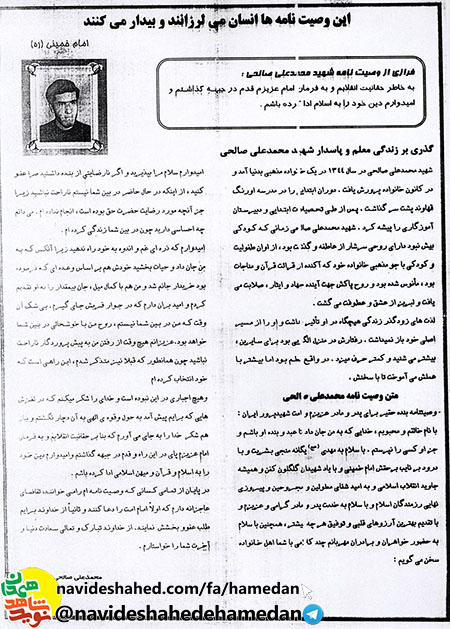 این وصیت نامه ها انسان می لرزانند و بیدار می کنند
امام خمینی (ره)
فرازی از وصیت نامه شهید محمدعلی صالحی :
به خاطر حقانیت انقلابم و به فرمان امام عزیزم قدم در جبهه گذاشتم و
امیدوارم دین خود را به اسلام ادا کرده باشم .
گذری بر زندگی معلم و پاسدار شهید محمدعلی صالحی
شهید محمدعلی صالحی در سال ۱۳۴۴ در یک خانواده مذهبی بدنیا آمد و
در کانون خانواده پرورش یافت . دوران ابتدایی را در مدرسه اورنگ
نهاوند پشت سر گذاشت . پس از طی تحصیلات ابتدایی و دبیرستان
آموزگاری را پیشه کرد . شهید محمدعلی صالحی زمانی که کودکی
بیش نبود دارای روحی سرشار از عاطفه و گذشت بود ، از اوان طفولیت
و کودکی با جو مذهبی خانواده خود که آکنده از قرائت قرآن و مناجات
بود ، مأنوس شده بود و روح پاکش جهت آینده جهاد و ایثار ، صلابت می
یافت و لبریز از عشق و عطوفت می گشت .
لذت های زودگذر زندگی هیچگاه در او تأثیر نداشت و او را از مسیر
اصلی خود باز نمیداشت . رفتارش در منزل الگویی بود برای سایرین ،
بیشتر می شنید و کمتر حرف میزد . در واقع معلم بود اما بیشتر با
عملش می آموخت تا با سخنش .
متن وصیت نامه محمدعلی صالحی
وصیتنامه بنده حقیر برای پدر و مادر عزیزم و امت شهیدپرور ایران :
با نام خالقم و محبوبم ، خدایی که به من جان داد تا عبد و بنده او باشم و
جز او کسی را نپرستم . با سلام به مهدی (عج) یگانه منجی بشریت و با
درود بر نایب برحقش امام خمینی و با یاد شهیدان گلگون کفن و همیشه
جاوید انقلاب اسلامی و به امید شفای معلولین و مجروحین و پیروزی
نهایی رزمندگان اسلام و با سلام به خدمت پدر و مادر گرامی و عزیزم و
با تقدیم بهترین آرزوهای قلبی و توفیق هر چه بیشتر ، همچنین با سلام
به حضور خواهران و برادران مهربانم چند کلامی با شما اهل خانواده
سخن می گویم :
امیدوارم سلام مرا بپذیرید و اگر نارضایتی از بنده داشتید مرا عفو
کنید ، از اینکه در حال حاضر در بین شما نیستم ناراحت نباشید زیرا
جز آنچه مورد رضایت حضرت حق بوده است ، انجام نداده ام . می دانم
چه احساسی دارید چون در بین شما زندگی کرده ام .
امیدوارم که ذره ای غم و اندوه به خود راه ندهید زیرا آنکس که به
من جان داد و حیات بخشید خودش هم بر اساس وعده ای که فرموده
بود خریدار جانم شد و من هم با کمال میل ، جان بیمقدار را به او تقدیم
کردم و امید بران دارم که در جوار قربش جای گیرم . بی شک آن
وقت که من در بین شما نیستم ، روح من با خوشحالی در بین شما
خواهد بود . عزیزانم هیچ وقت از رفتن من به پیش پروردگار ناراحت
نباشید چون همانطور که قبلا نیز متذکر شدم ، این راهی است که
خود انتخاب کرده ام
وهیچ اجباری در این نبوده است و خدای را شکر میکنم که در لغزش
هایی که برایم پیش آمد به حول وقوه ی الهی به آن دچار نگشتم و باز
هم شکر خدا را به جای می آورم که بنا بر حقانیت انقلابم و به فرمان
امام عزیزم پای در این راه و قدم در جبهه گذاشتم وامیدوارم دین خود
را به اسلام و قرآن و میهن اسلامی ادا کرده باشم .
در پایان از تمامی کسانی که وصیت نامه ام را می خوانند ، تقاضای
عاجزانه دارم که اولاً امام امت را دعا کنند و ثانیاً از خداوند برایم
طلب عفو و بخشش نمایند . از خداوند تبارک و تعالی سعادت دنیا و
آخرت شما را خواستارم .
محمدعلی صالحی
نوید شاهد
همدان
navideshahed.com/fa/hamedan
@navideshahedehamedan